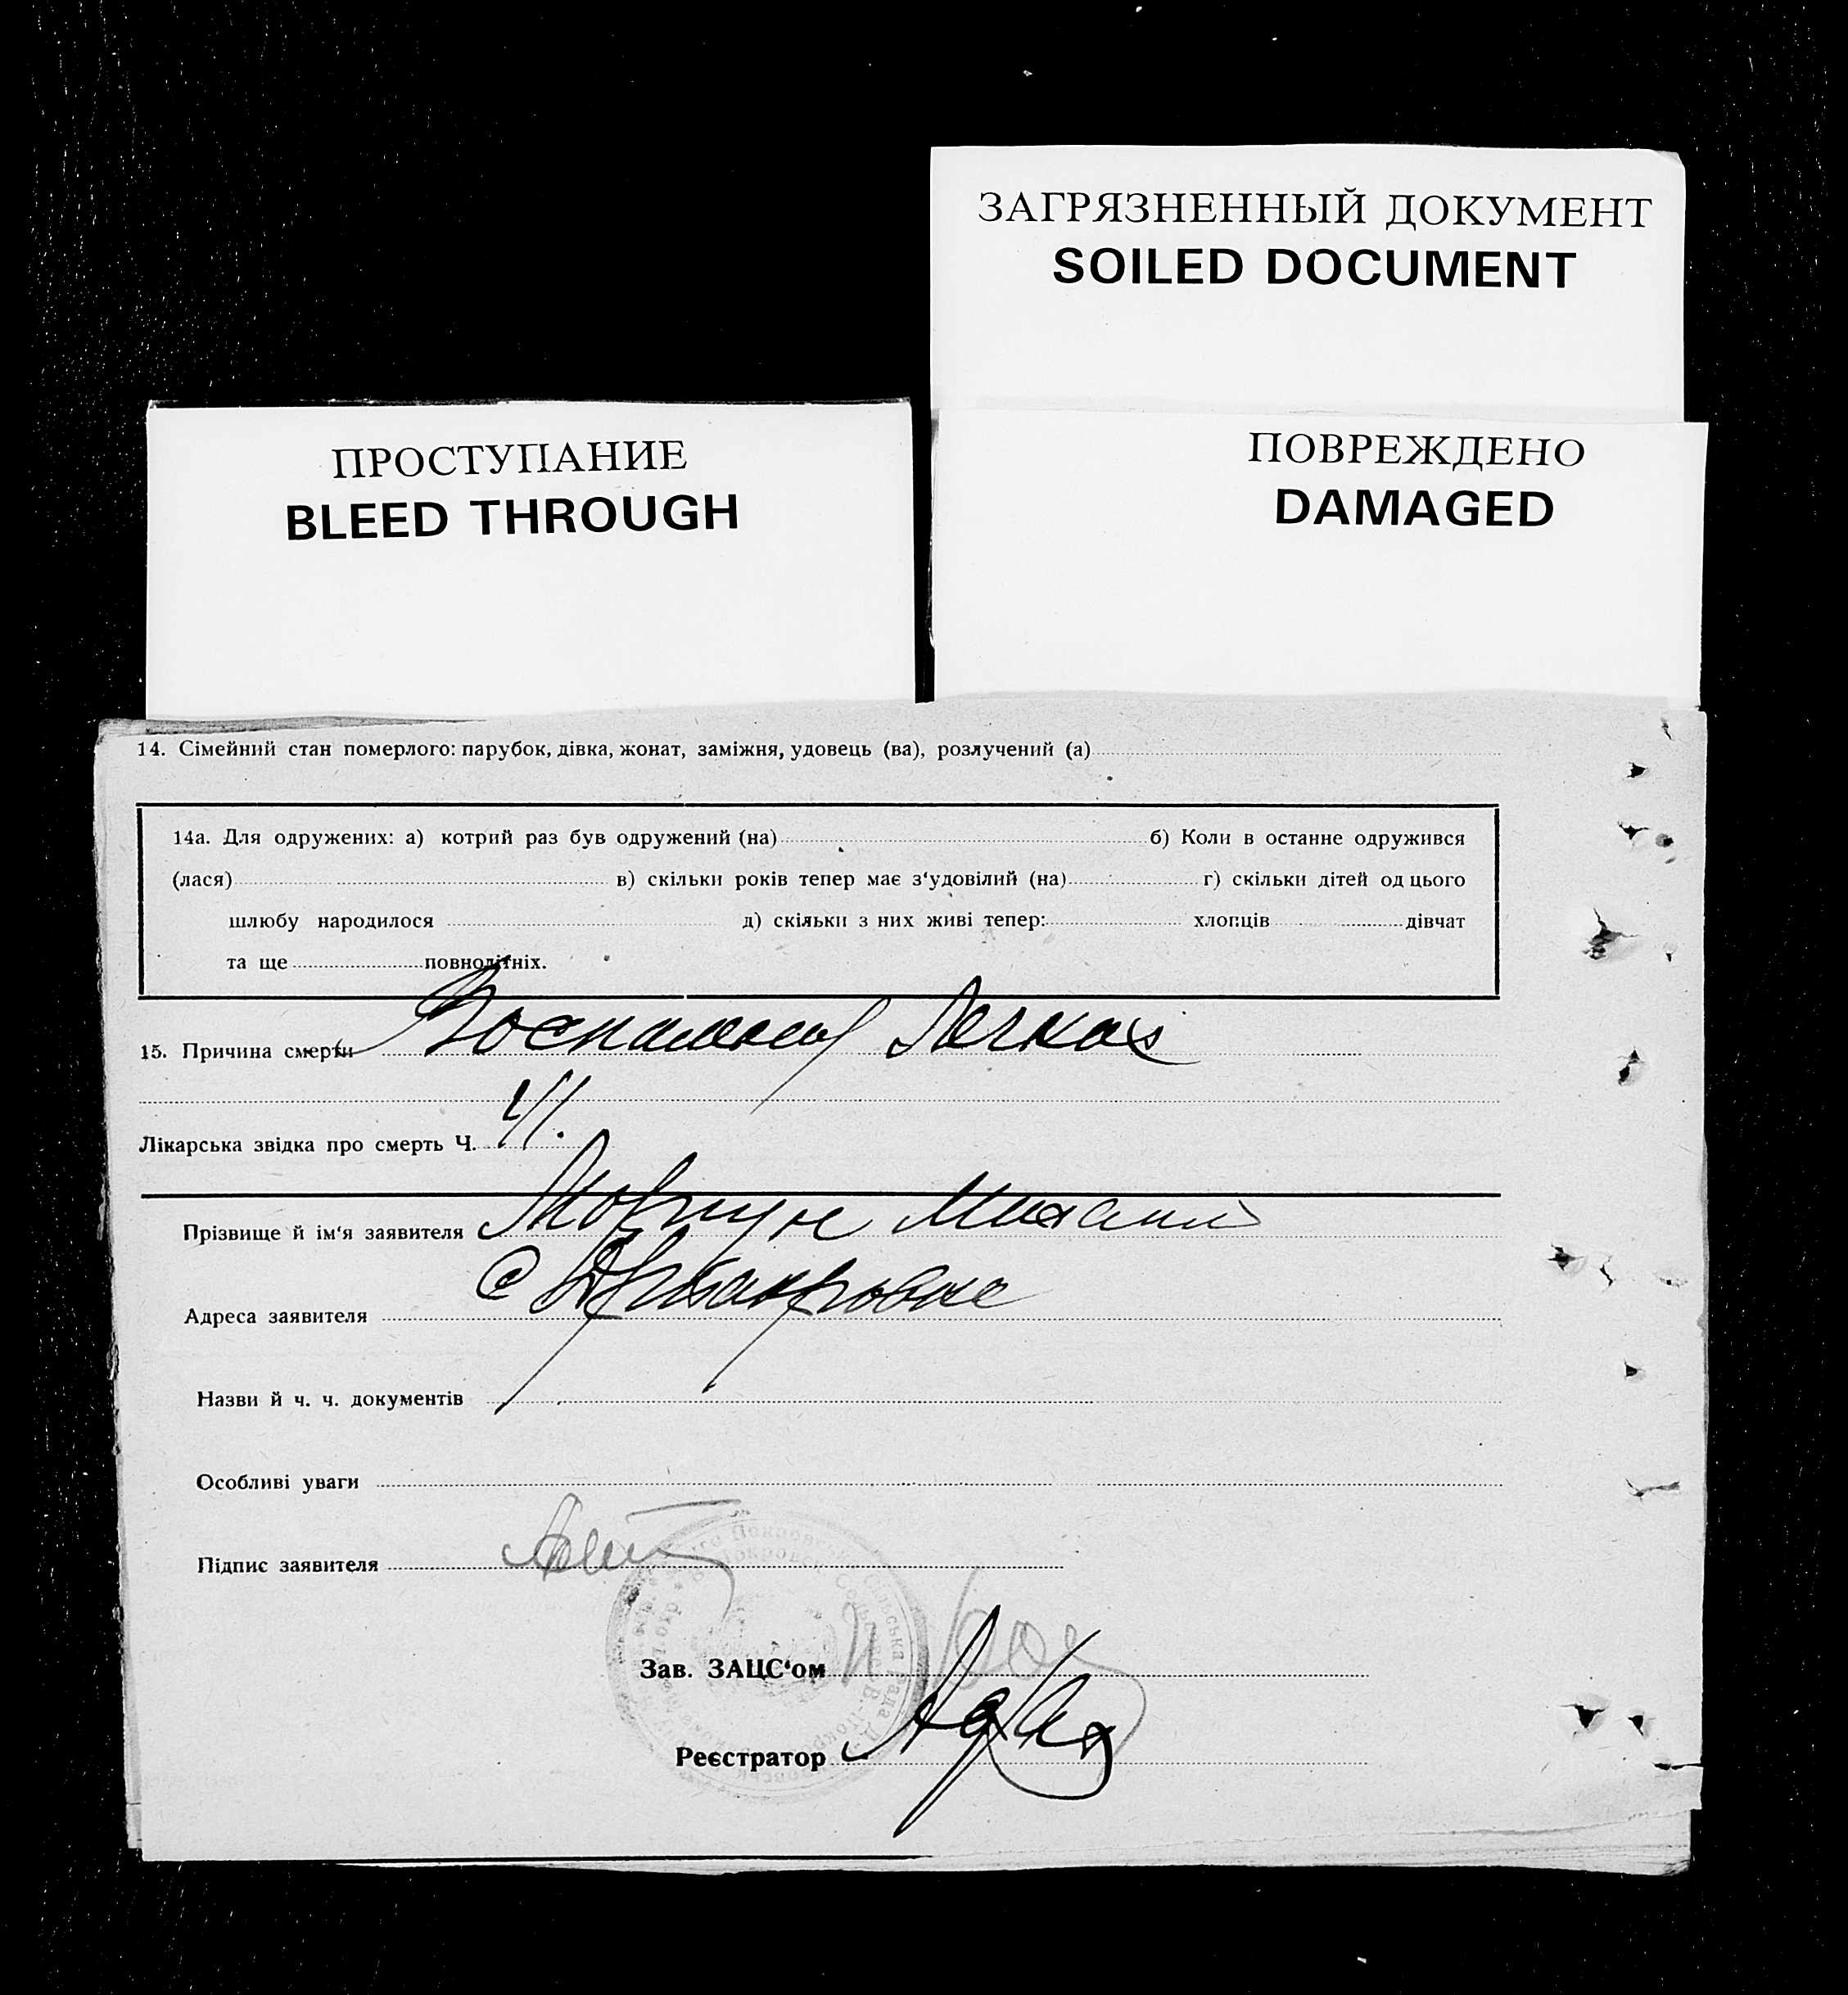 ЗАГРЯЗНЕННЫЙ ДОКУМЕНТ
SOILED DOCUMENT
ПРОСТУПАНИЕ
BLEED THROUGH
ПОВРЕЖДЕНО
DAMAGED
14. Сімейний стан померлого: парубок, дівка, жонат, заміжня, удовець (ва), розлучений (а)
14а. Для одружених: а) котрий раз був одружений (на) б) Коли в останне одружився
(лася) в) скільки років тепер має з‘удовілий (на) г) скільки дітей од цього
шлюбу народилося д) скільки з них живі тепер: хлопців дівчат
та ще повнолітніх.
15. Причина смерти Воспаление Легких
Лікарська звідка про смерть Ч.
Прізвище й ім‘я заявителя Михаил
Адреса заявителя с
Назви й ч. ч. документів
Особливі уваги
Підпис заявителя
Зав. ЗАЦС‘ом
Реєстратор